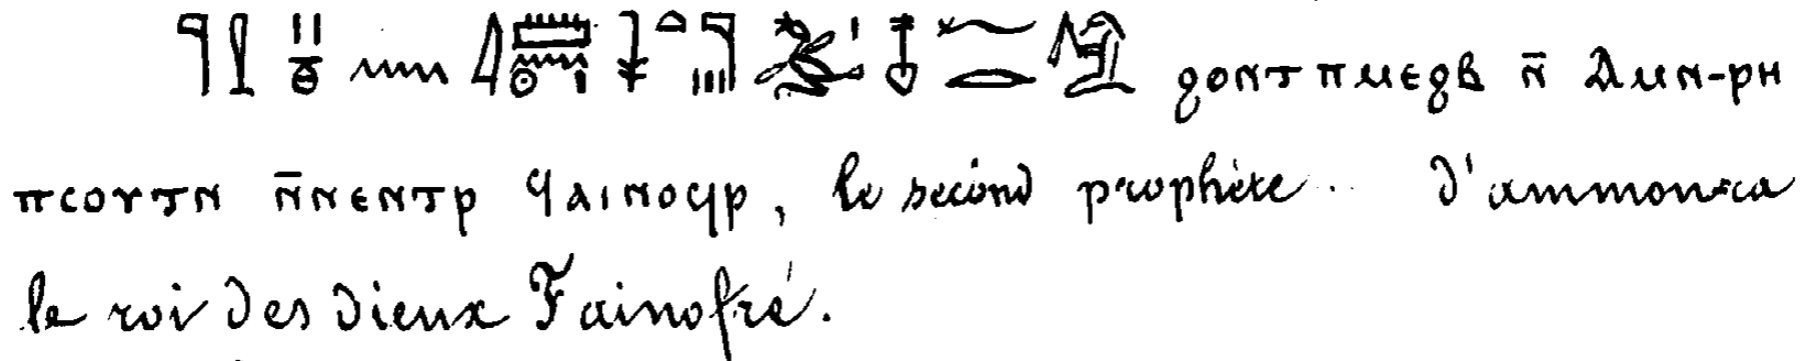 𓊹𓍛 𓈖 𓇋𓏠𓈖𓇳𓏤 𓇓𓏏𓊹𓏪 𓄤𓆑𓂋 ϩⲟⲛⲧ ⲡⲙⲉϩⲃ ⲛ̄ Ⲁⲙⲛ-ⲣⲏ
ⲡⲥⲟⲩⲧⲛ ⲛ̄ⲛⲉⲛⲧⲣ ϥⲁⲓⲛⲟϥⲣ, le second prophète .. d'ammon-ra
le roi des dieux Fainofré.